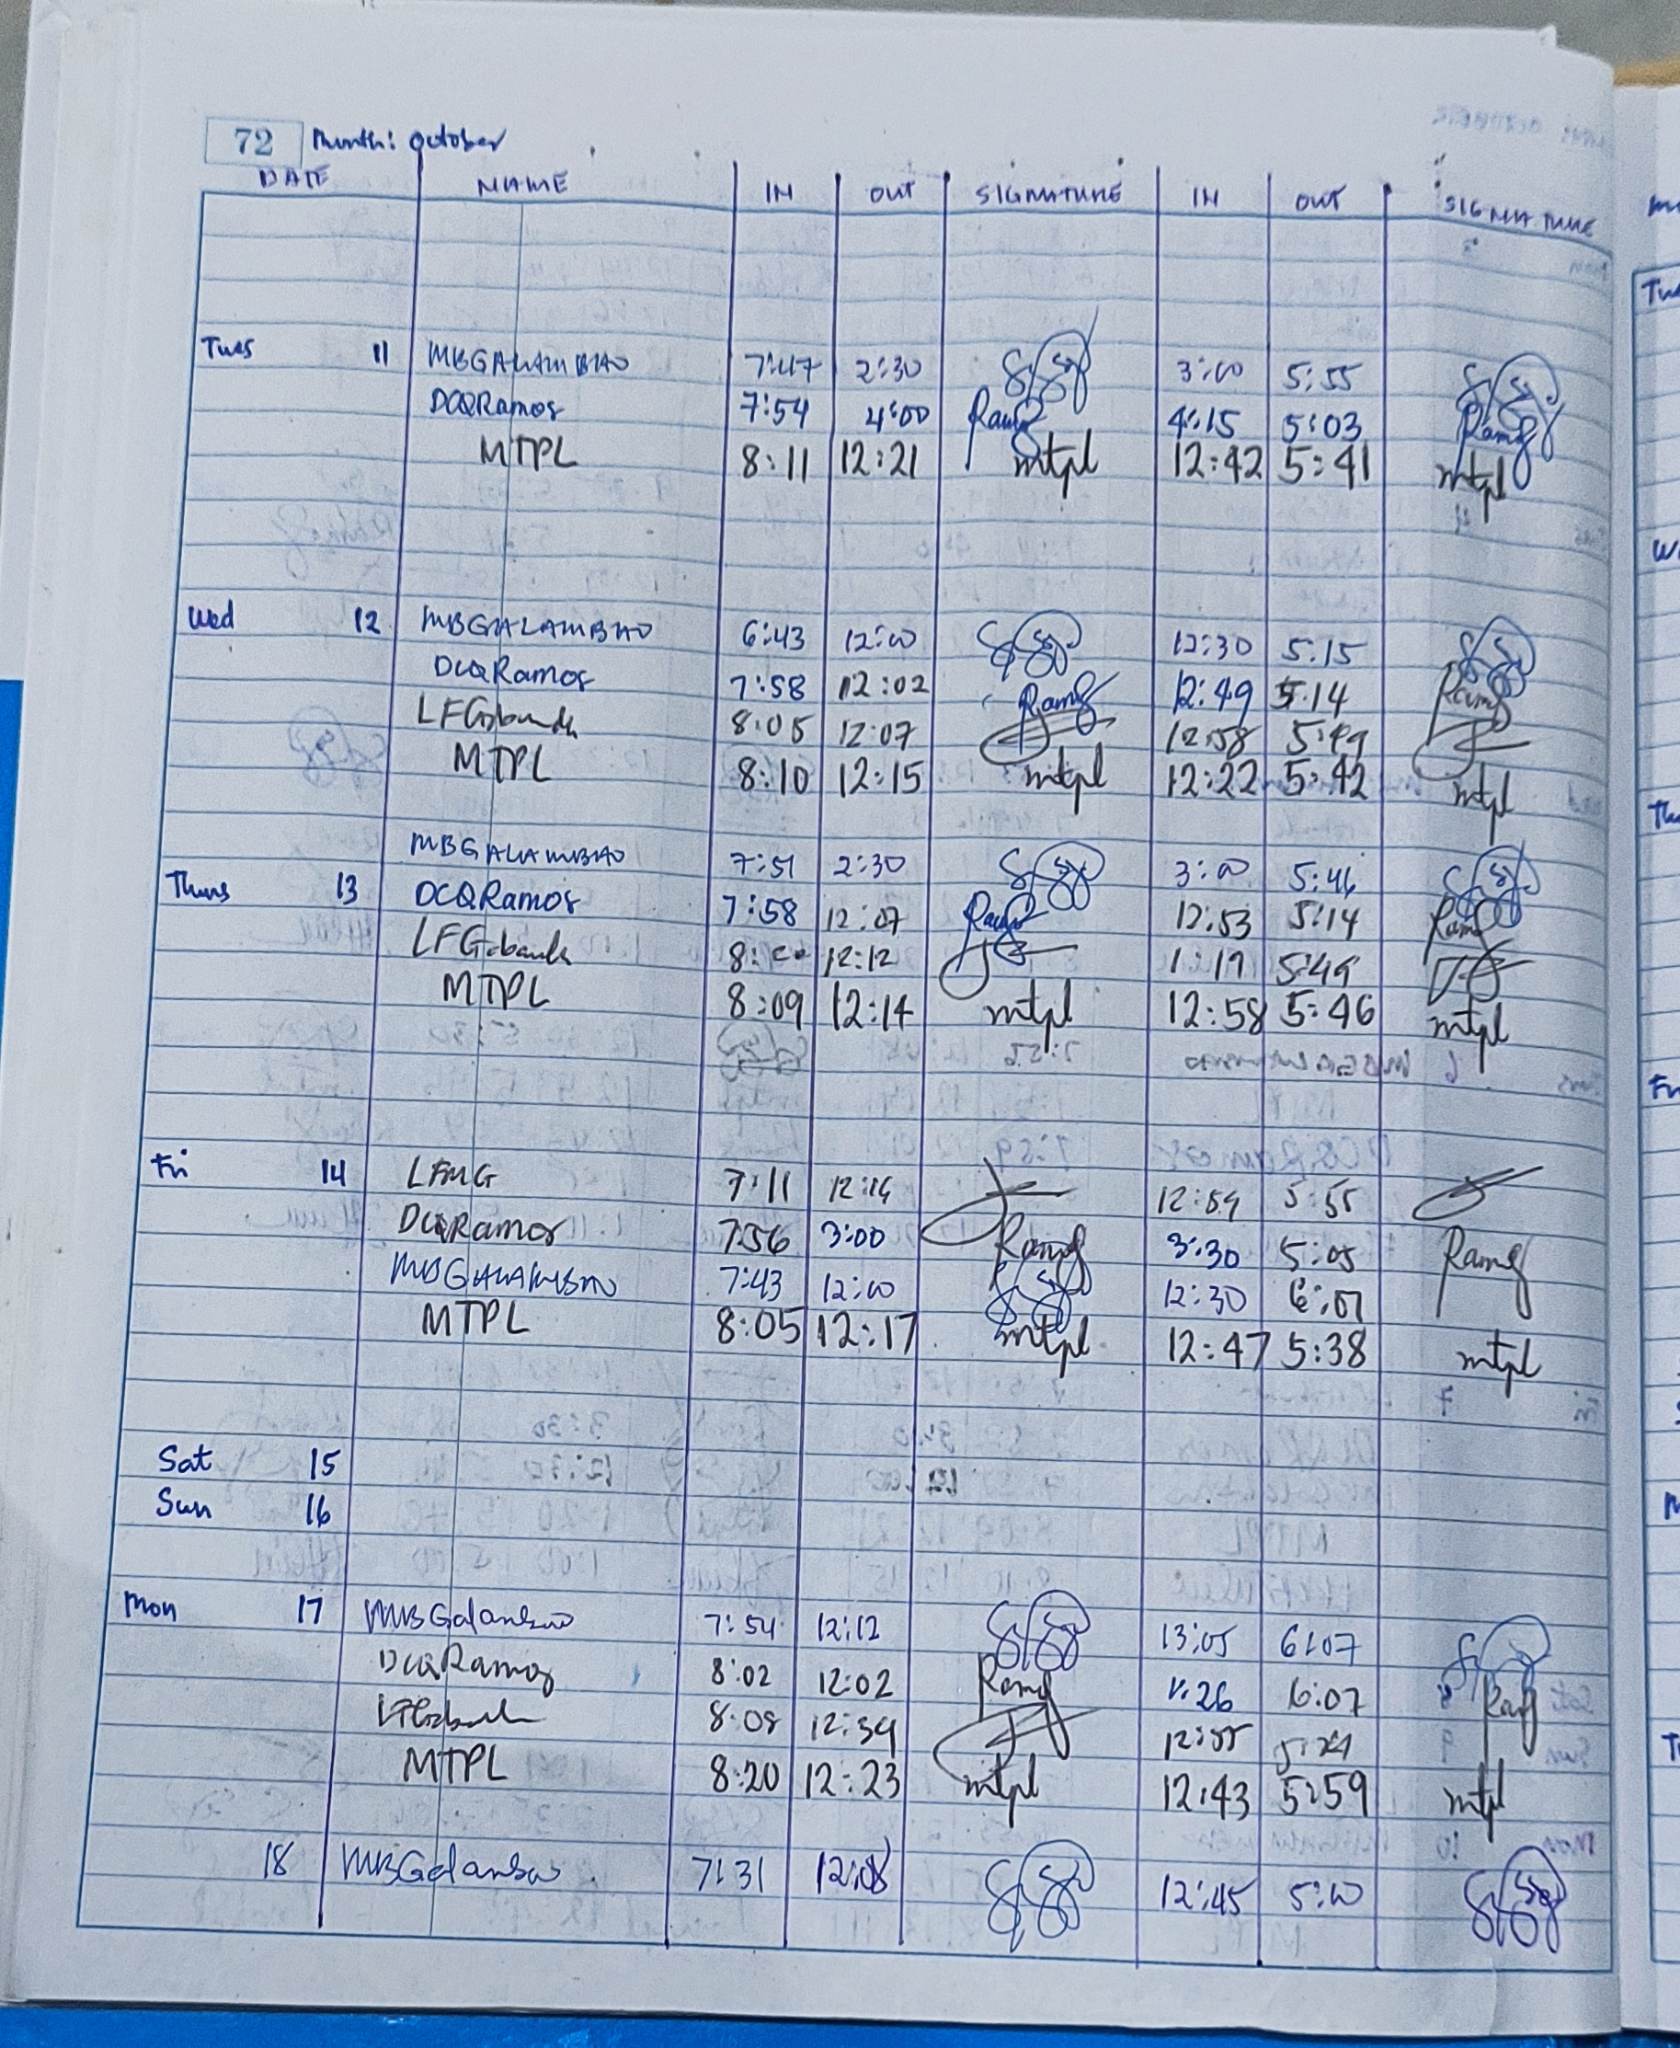 72 Month: October
DATE NAME IN OUT SIGNATURE IN OUT SIGNATURE
Tues 11 MBGALAMBAO 7:47 2:30 3:00 5:55
DCQRamos 7:54 4:00 4:15 5:03
MTPL 8:11 12:21 mtpl 12:42 5:41 mtpl
Wed 12 MBGALAMBAO 6:43 12:00 12:30 5:15
DCQRamos 7:58 12:02 12:49 5:14
8:05 12:07 12:58 5:49
MTPL 8:10 12:15 mtpl 12:22 5:42 mtpl
MBGALAMBAO 7:51 2:30 3:00 5:46
Thurs 13 DCQRamos 7:58 12:07 12:53 5:14
12:12 5:49
MTPL 8:09 12:14 mtpl 12:58 5:46 mtpl
Fri 14 LFMG 7:11 12:14 12:59 5:55
DCQRamos 7:56 3:00 3:30 5:05
MBGALAMBAO 7:43 12:00 12:30 6:07
MTPL 8:05 12:17 mtpl 12:47 5:38 mtpl
Sat 15
Sun 16
Mon 17 MBGalambao 7:54 12:12 13:05 6:07
DCQRamos 8:02 12:02 6:07
MTPL 8:20 12:23 mtpl 12:43 5:59 mtpl
18 MBGalambao 7:31 12:08 12:45 5:10